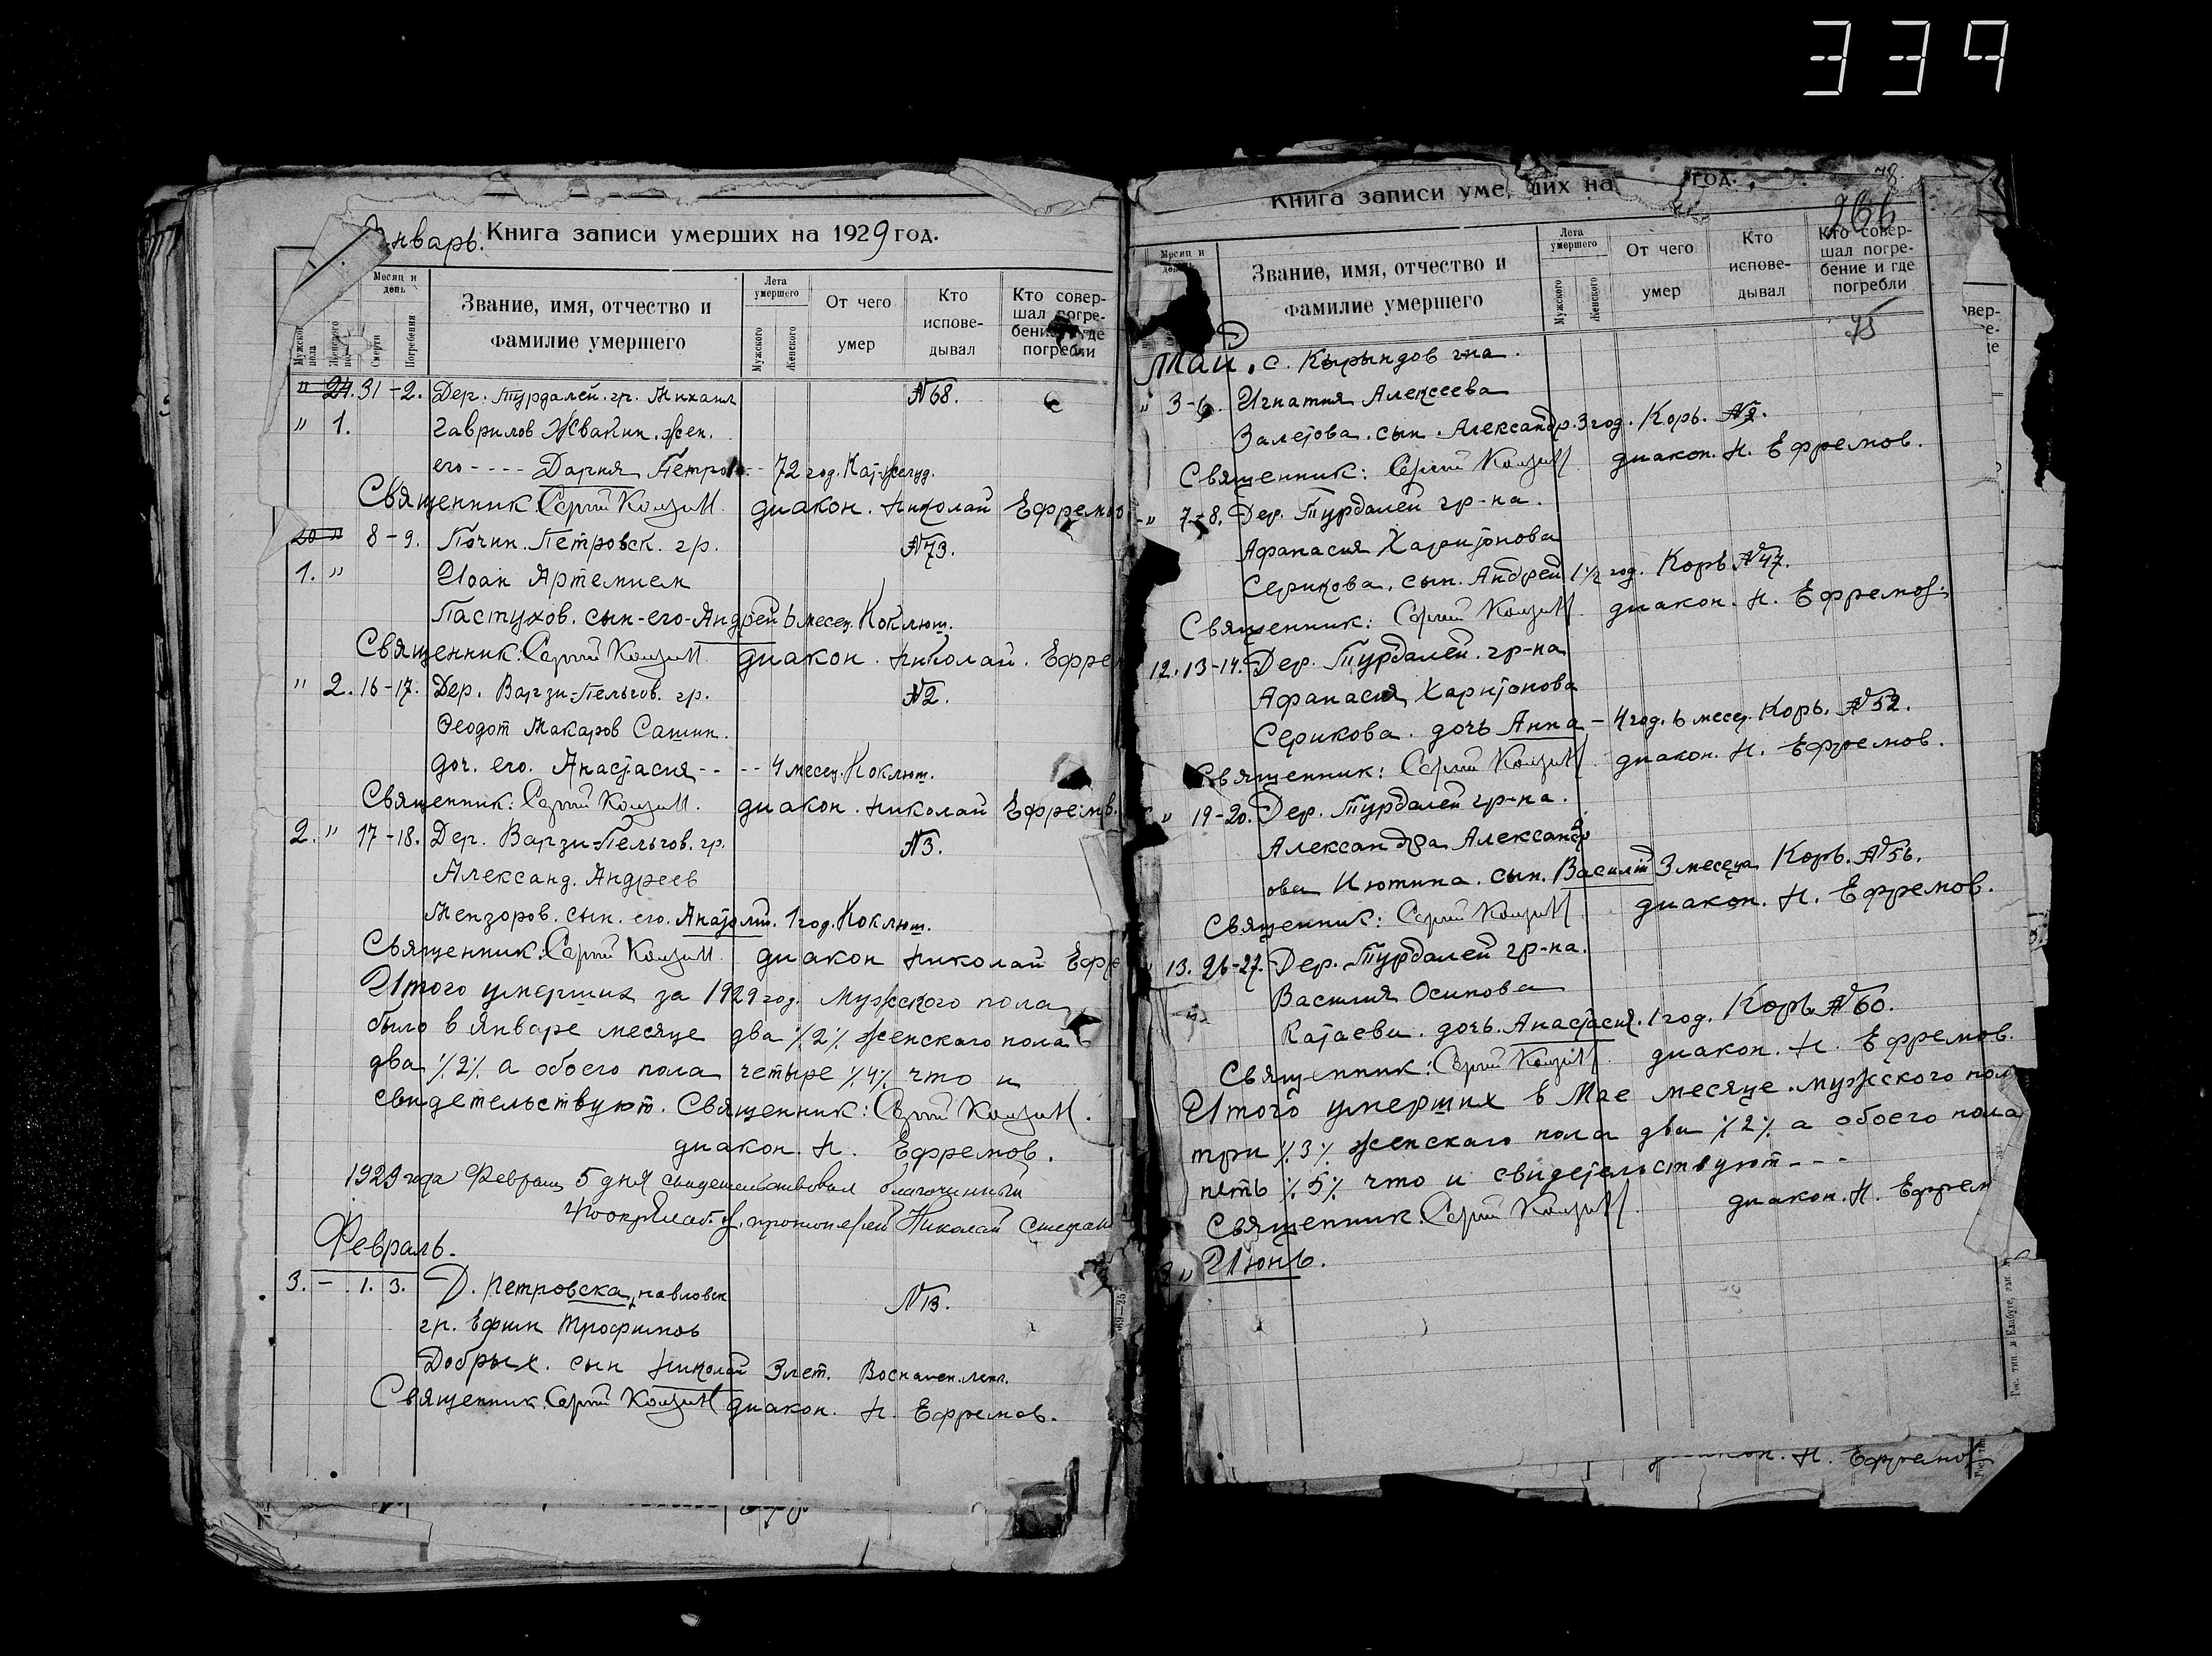 339
Январь. Книга записи умерших на 1929 год.
Мужского пола
Женского
Месяц и день
Смерти
Погребения
Звание, имя, отчество и фамилие умершего
Лета умершего
Мужского
Женского
От чего умер
Кто исповедывал
Кто совершал погребение и где погребли
" 24. 31-2. Дер. Турдалей. гр. Михаил №68.
" 1. Гаврилов Жвакин. жен.
его ---- Дария Петров -- 72 год. Кат. желуд.
Священник: Сергий диакон. Николай Ефремов
20 " 8-9. Почин. Петровск. гр. №73.
1. " Иоан Артемием
Пастухов. сын-его-Андрей 6 месец. Коклюш.
Священник: Сергий диакон. Николай. Ефрем
" 2. 16-17. Дер. Варзи-Пельгов. гр. №2.
Феодот Макаров Сашин.
доч. его. Анастасия -- -- 4 месец. Коклюш.
Священник: Сергий диакон. Николай Ефремв.
2. " 17-18. Дер. Варзи-Пельгов. гр. №3.
Александ. Андреев
Мензоров. сын. его. Анатолий. 1 год. Коклюш.
Священник: Сергий диакон Николай Ефре
Итого умерших за 1929 год. Мужского пола
было в Январе месяце два %2% женскаго пола
два %2% а обоего пола четыре %4% что и
свидетельствуют. Священник: Сергий
диакон. Н. Ефремов.
1929 года Февраля 5 дня свидетельствовал благочинный
протоиерей Николай
Февраль.
3. - 1. 3. Д. Петровска, павловск №13.
гр. Ефим Трофимов
Добрых. сын Николай 3 лет. Воспален. легк.
Священник. Сергий диакон. Н. Ефремов.
78.
Книга записи умерших на год.
266
Месяц и день
Звание, имя, отчество и фамилие умершего
Лета умершего
Мужского
Женского
От чего умер
Кто исповедывал
Кто совершал погребение и где погребли
75
Май. с. Кырындов г-на.
" 3-6. Игнатия Алексеева
Залетова. сын. Александр. 3 год. Корь.
Священник: Сергий диакон. Н. Ефремов.
" 7-8. Дер. Турдалей гр-на.
Афанасия Харитонова
Серикова. сын. Андрей 1 1/2 год. Корь. №47.
Священник: Сергий диакон. Н. Ефремов.
12. 13-14. Дер. Турдалей. гр-на
Афанасия Харитонова
Серикова. дочь Анна - 4 год. 6 месец. Корь. №52.
Священник: Сергий диакон. Н. Ефремов.
" 19-20. Дер. Турдалей гр-на.
Александра Александр
ова Кютина. сын. Василий 3 месеца Корь. №56.
Священник: Сергий диакон. Н. Ефремов.
13. 26-27. Дер. Турдалей гр-на.
Василия Осипова
Катаева. дочь. Анастасия. 1 год. Корь. №60.
Священник: Сергий диакон. Н. Ефремов.
Итого умерших в Мае месяце. мужского пол
три %3% женскаго пола два %2% а обоего пола
петь %5% что и свидетельствуют ---
Священник. Сергий диакон. Н. Ефрем
Июнь.
Н. Ефремов